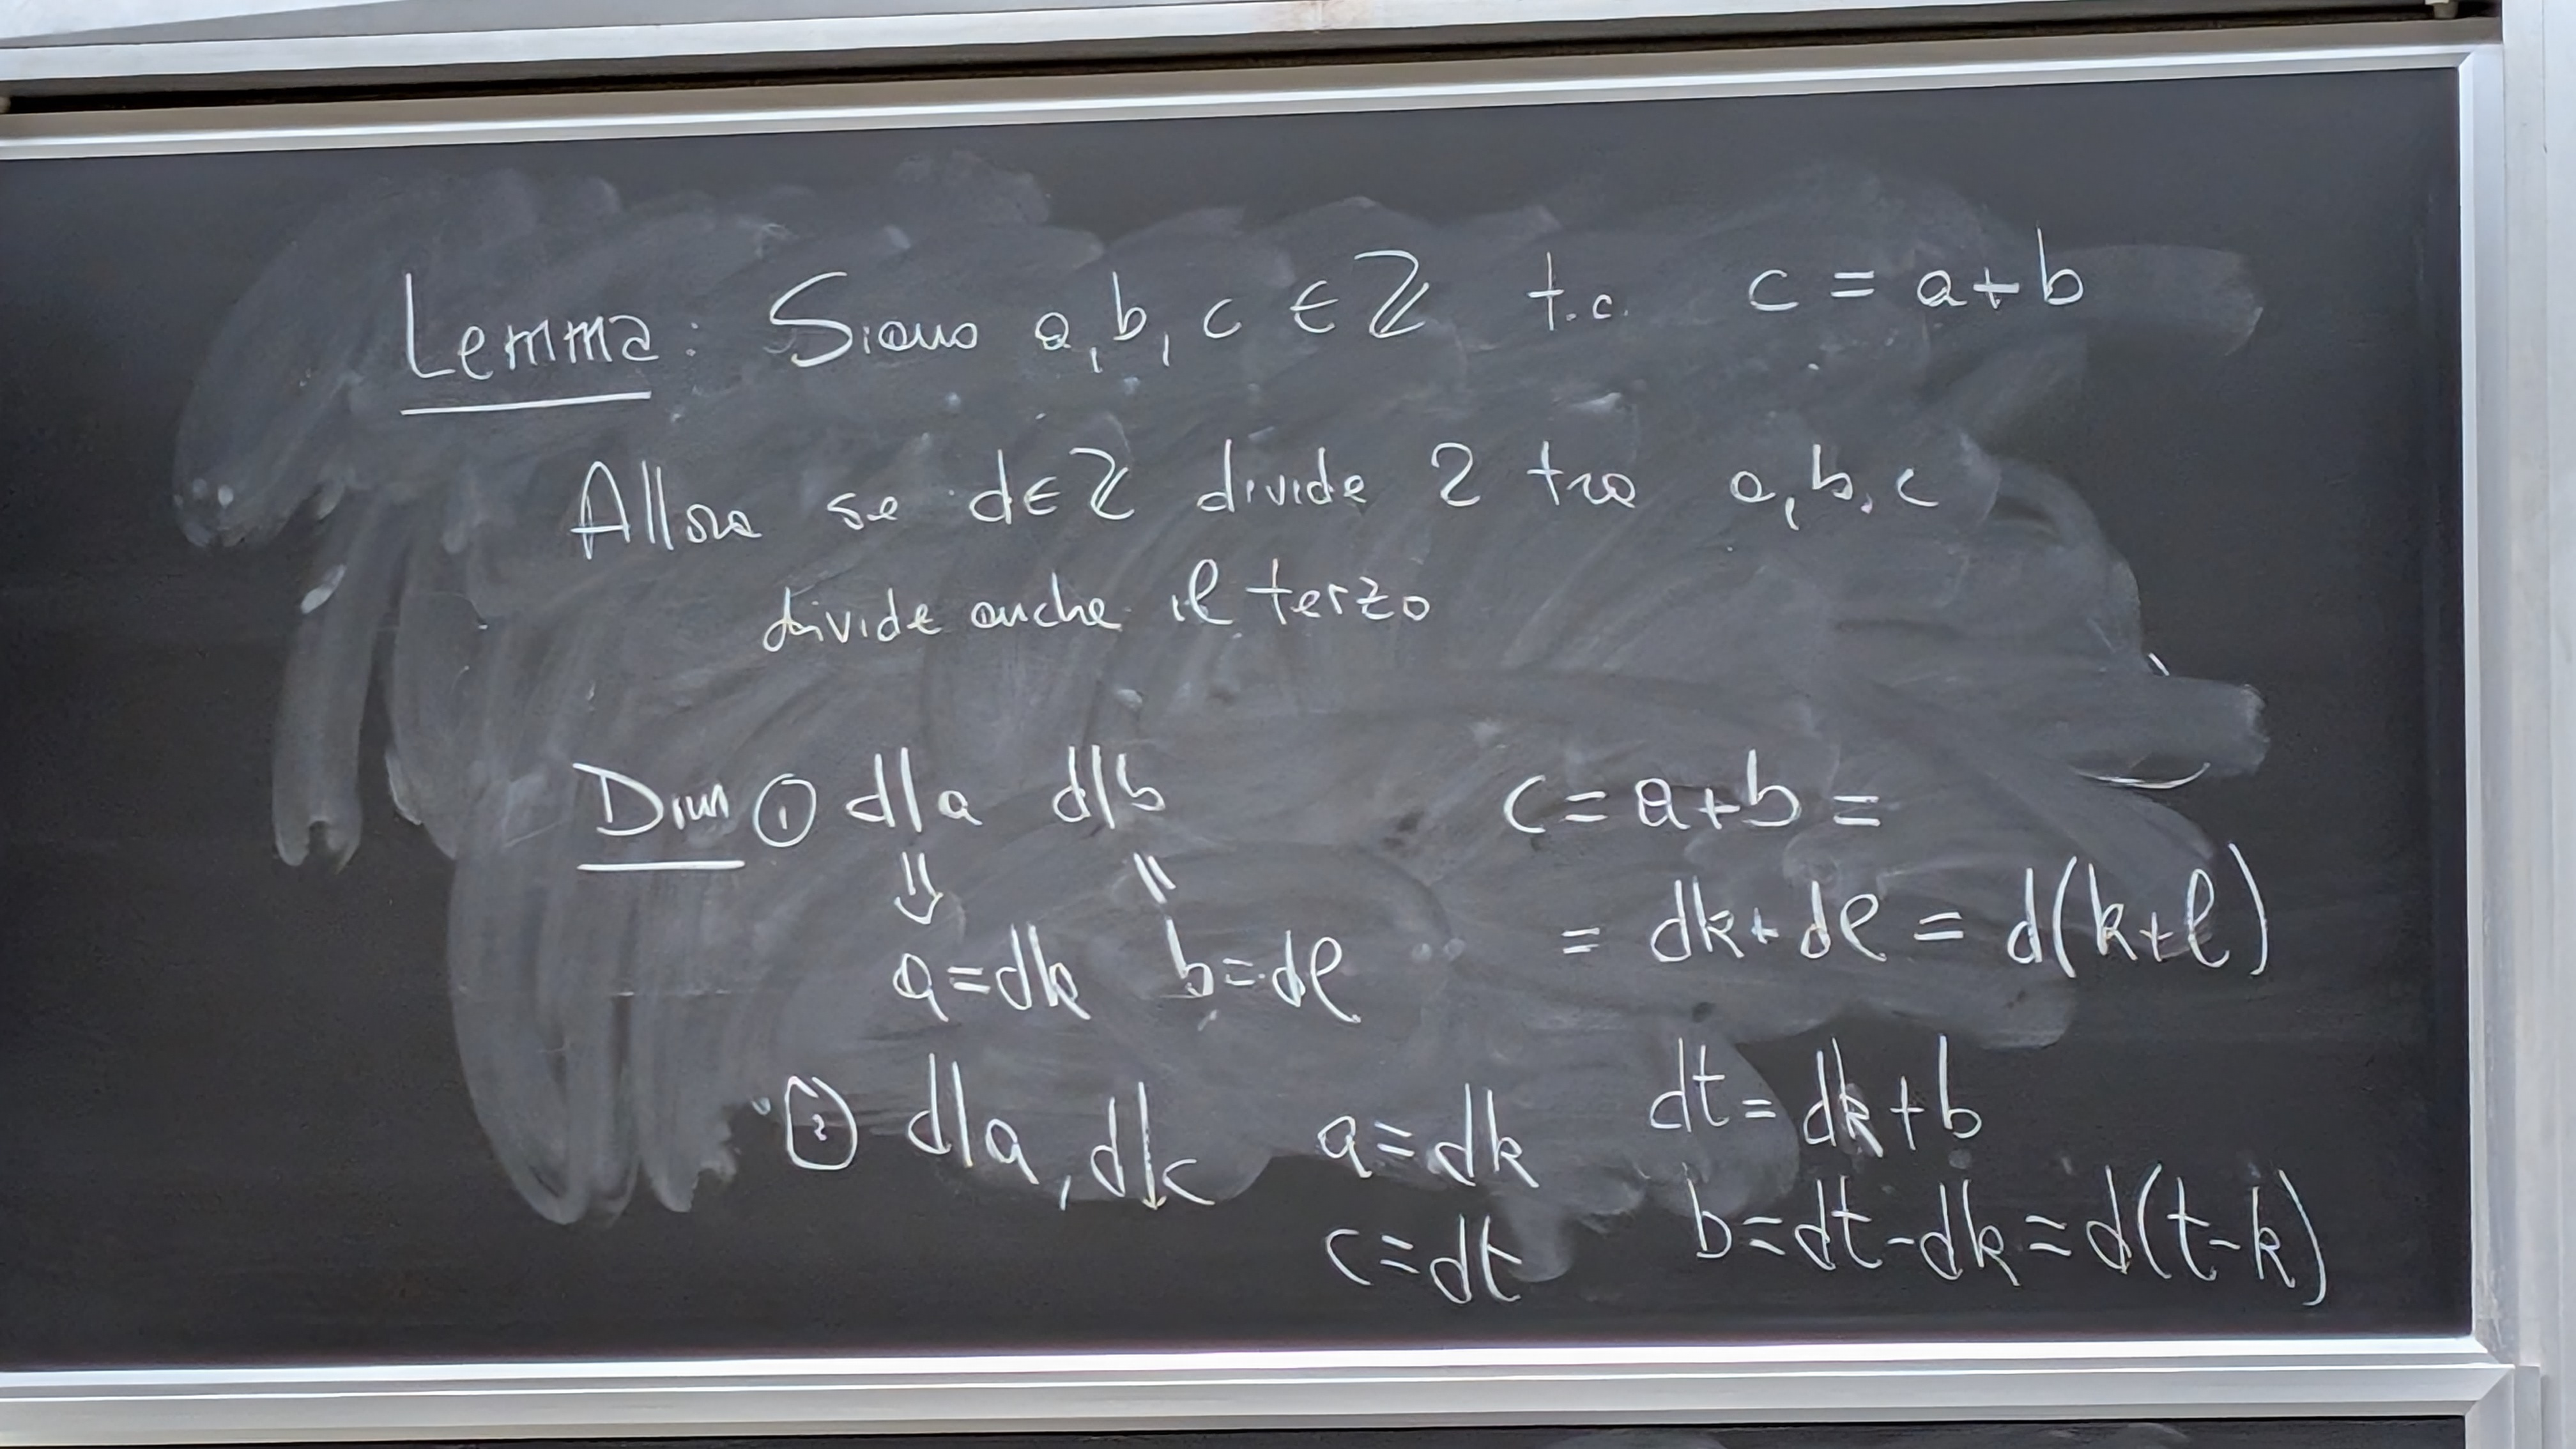 Lemma: Siano a, b, c ∈ ℤ t.c. c = a+b
Allora se d∈ℤ divide 2 tra a, b, c
divide anche il terzo
Dim ① d|a d|b c = a+b =
⇓ ⇓ = dk+dℓ = d(k+ℓ)
a=dk b=dℓ
② d|a, d|c a=dk dt = dk+b
c=dt b=dt-dk=d(t-k)